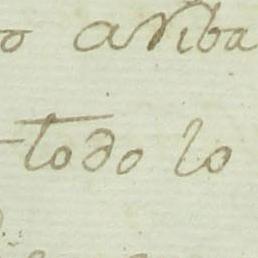 o ariba
todo lo